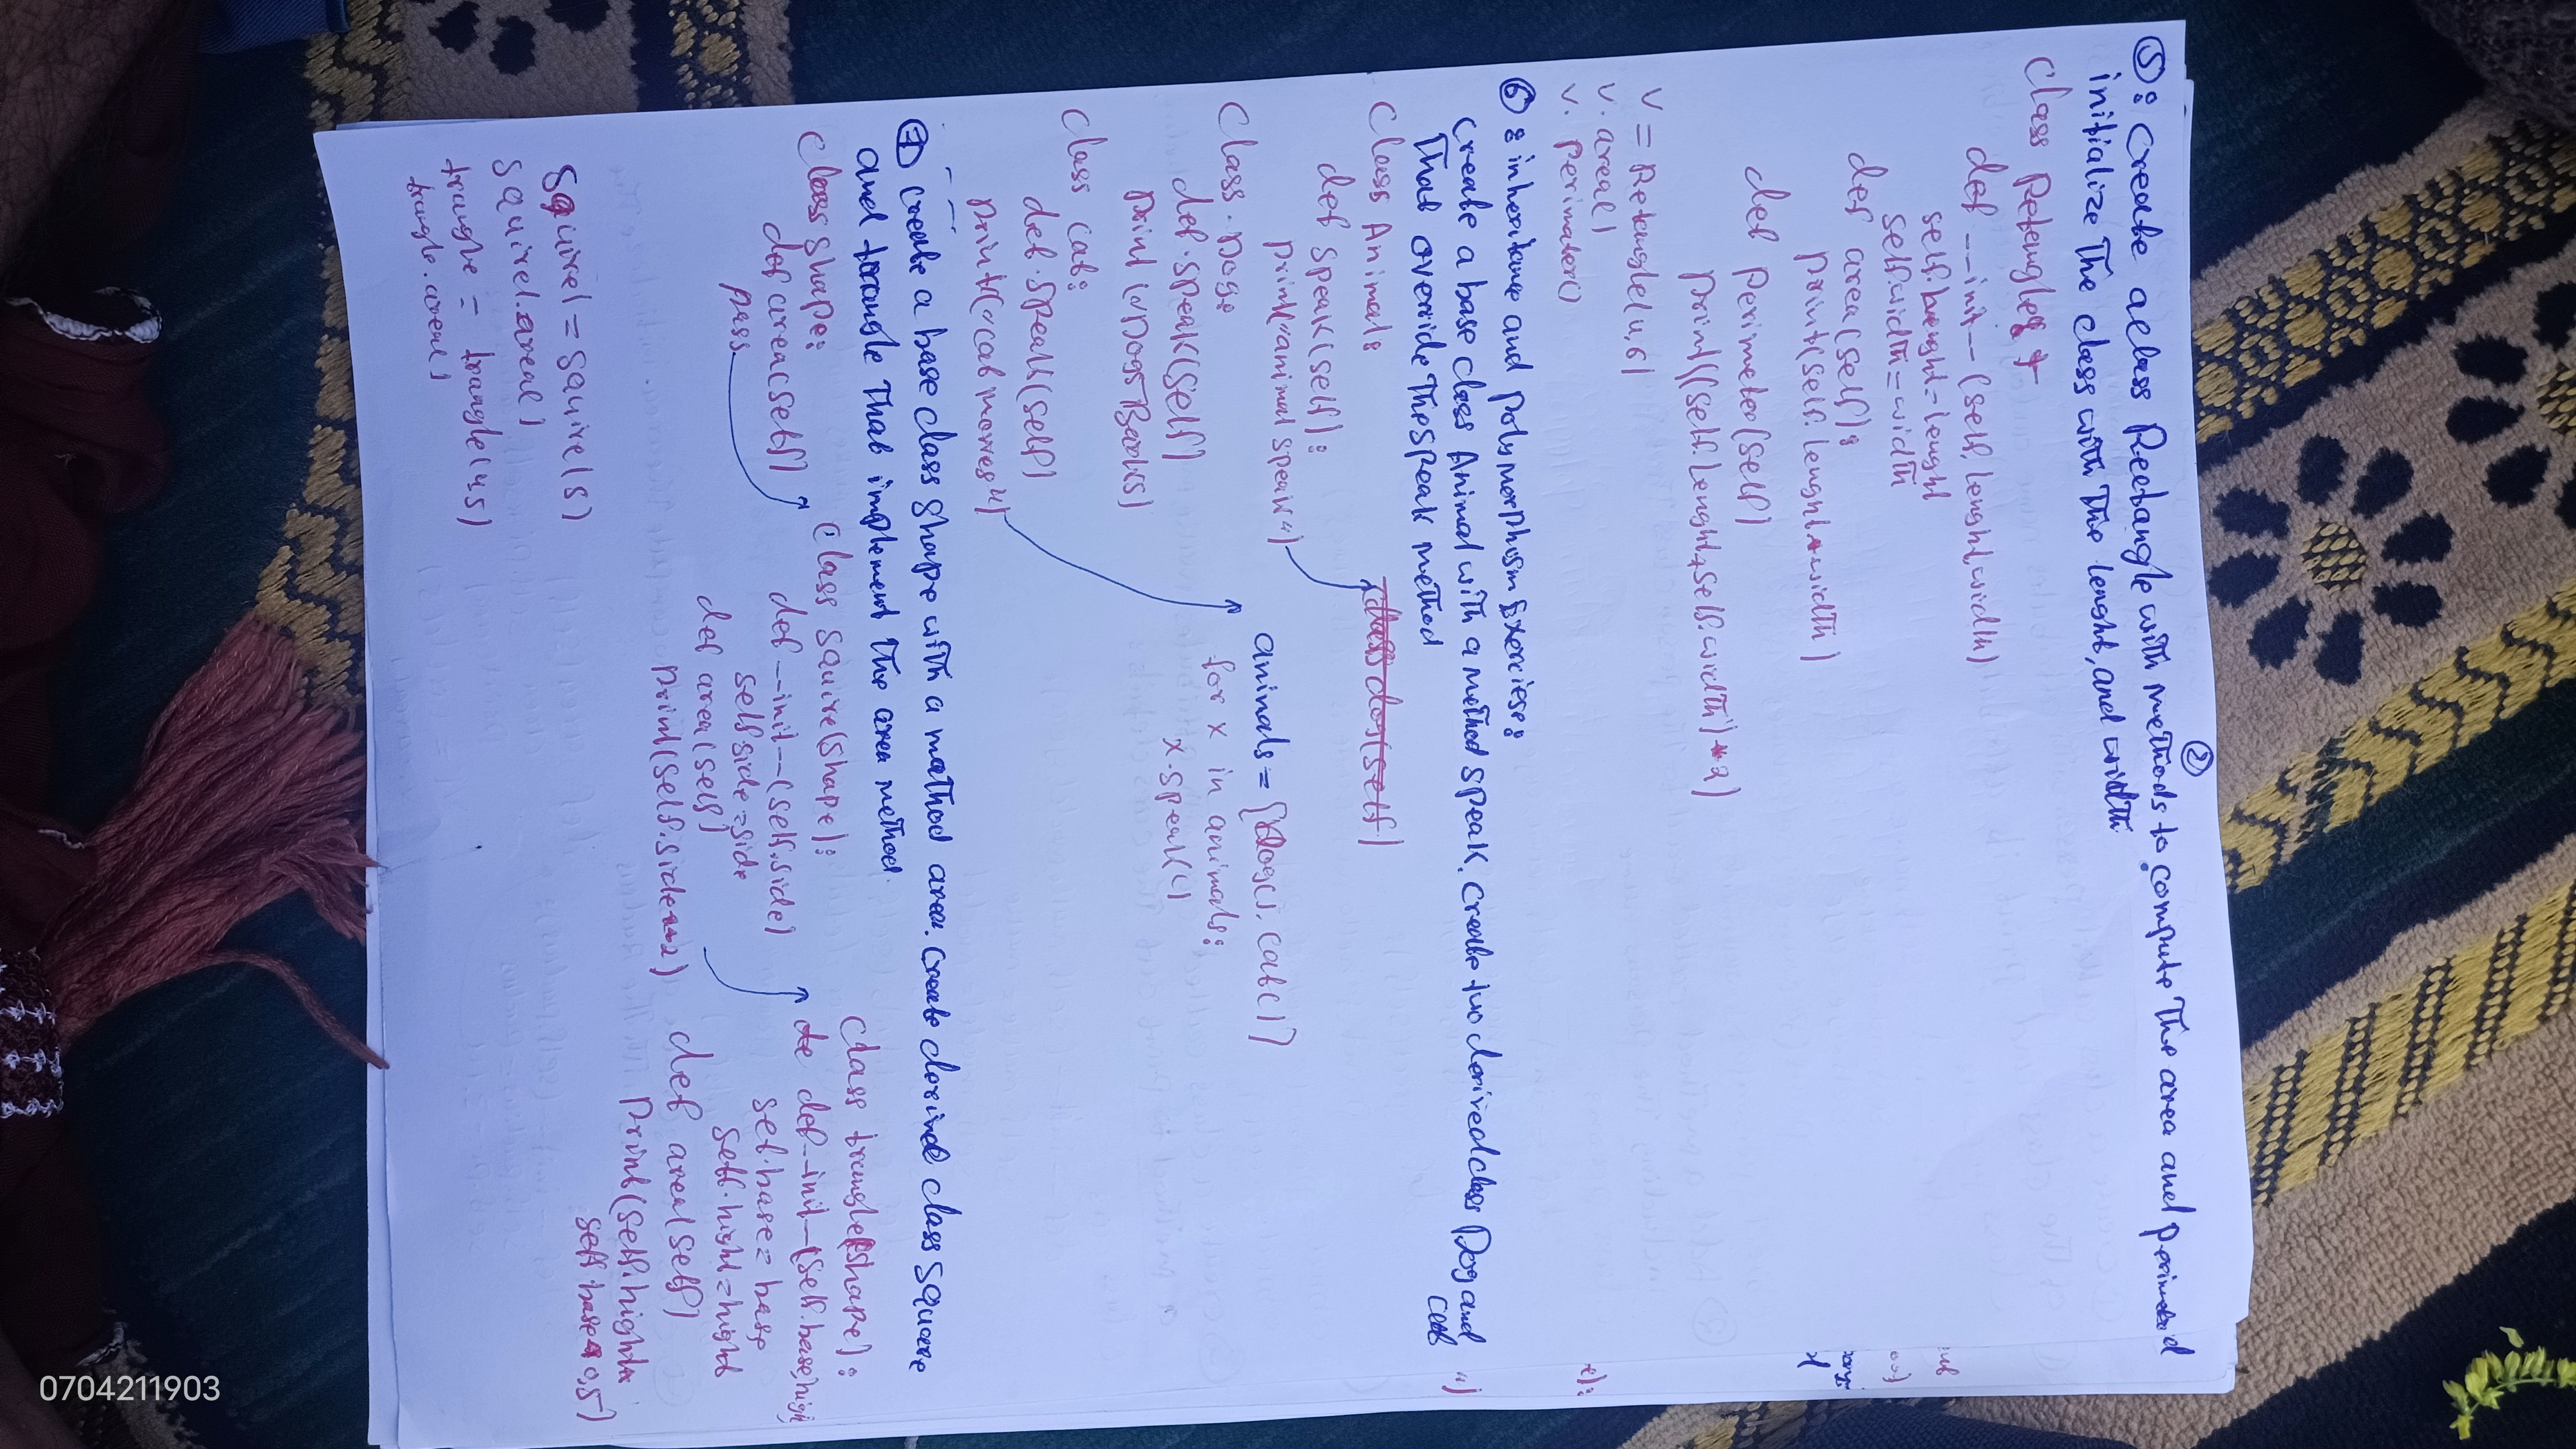 ②
⑤: Create a class Rectangle with methods to compute The area and perimeted
initialize The class with The lenght, and width
Class Retangle:
def __init__(self, lenght, width)
self.lenght = lenght
self.width = width
def area(self):
print(self.lenght * width)
def Perimeter(self)
print((self.Lenght + self.width) * 2)
V = Retangle(4,6)
V. area()
V. Perimater()
⑥: inheritance and polymorphism Exerciese:
Create a base class Animal with a method speak. create two derived class Dog and cat
That override The speak method
Class Animal:
def speak(self):
print("animal speak")
Class Dog:
def speak(self)
print ("Dogs Barks)
Class cat:
def speak(self)
print("cat mowes")
class dog(self)
aninals = [Dog(), Cat()]
for x in animals:
x.speak()
⑦ Create a base class shape with a mathod area. Create derived class Square
and trangle That implement The area method.
Class shape:
def area(self)
pass
Class Squire(Shape):
def __init__(self.side)
self side = side
def area(self)
Print(self.side**2)
Class trangle(shape):
def __init__(self.base, high
self.base = base
self.hight = hight
def area(self)
Print(self.hight*
self.base * 0,5)
Squirel = Squire(5)
Squirel.area()
trangle = trangle(4,5)
trangle.area()
0704211903